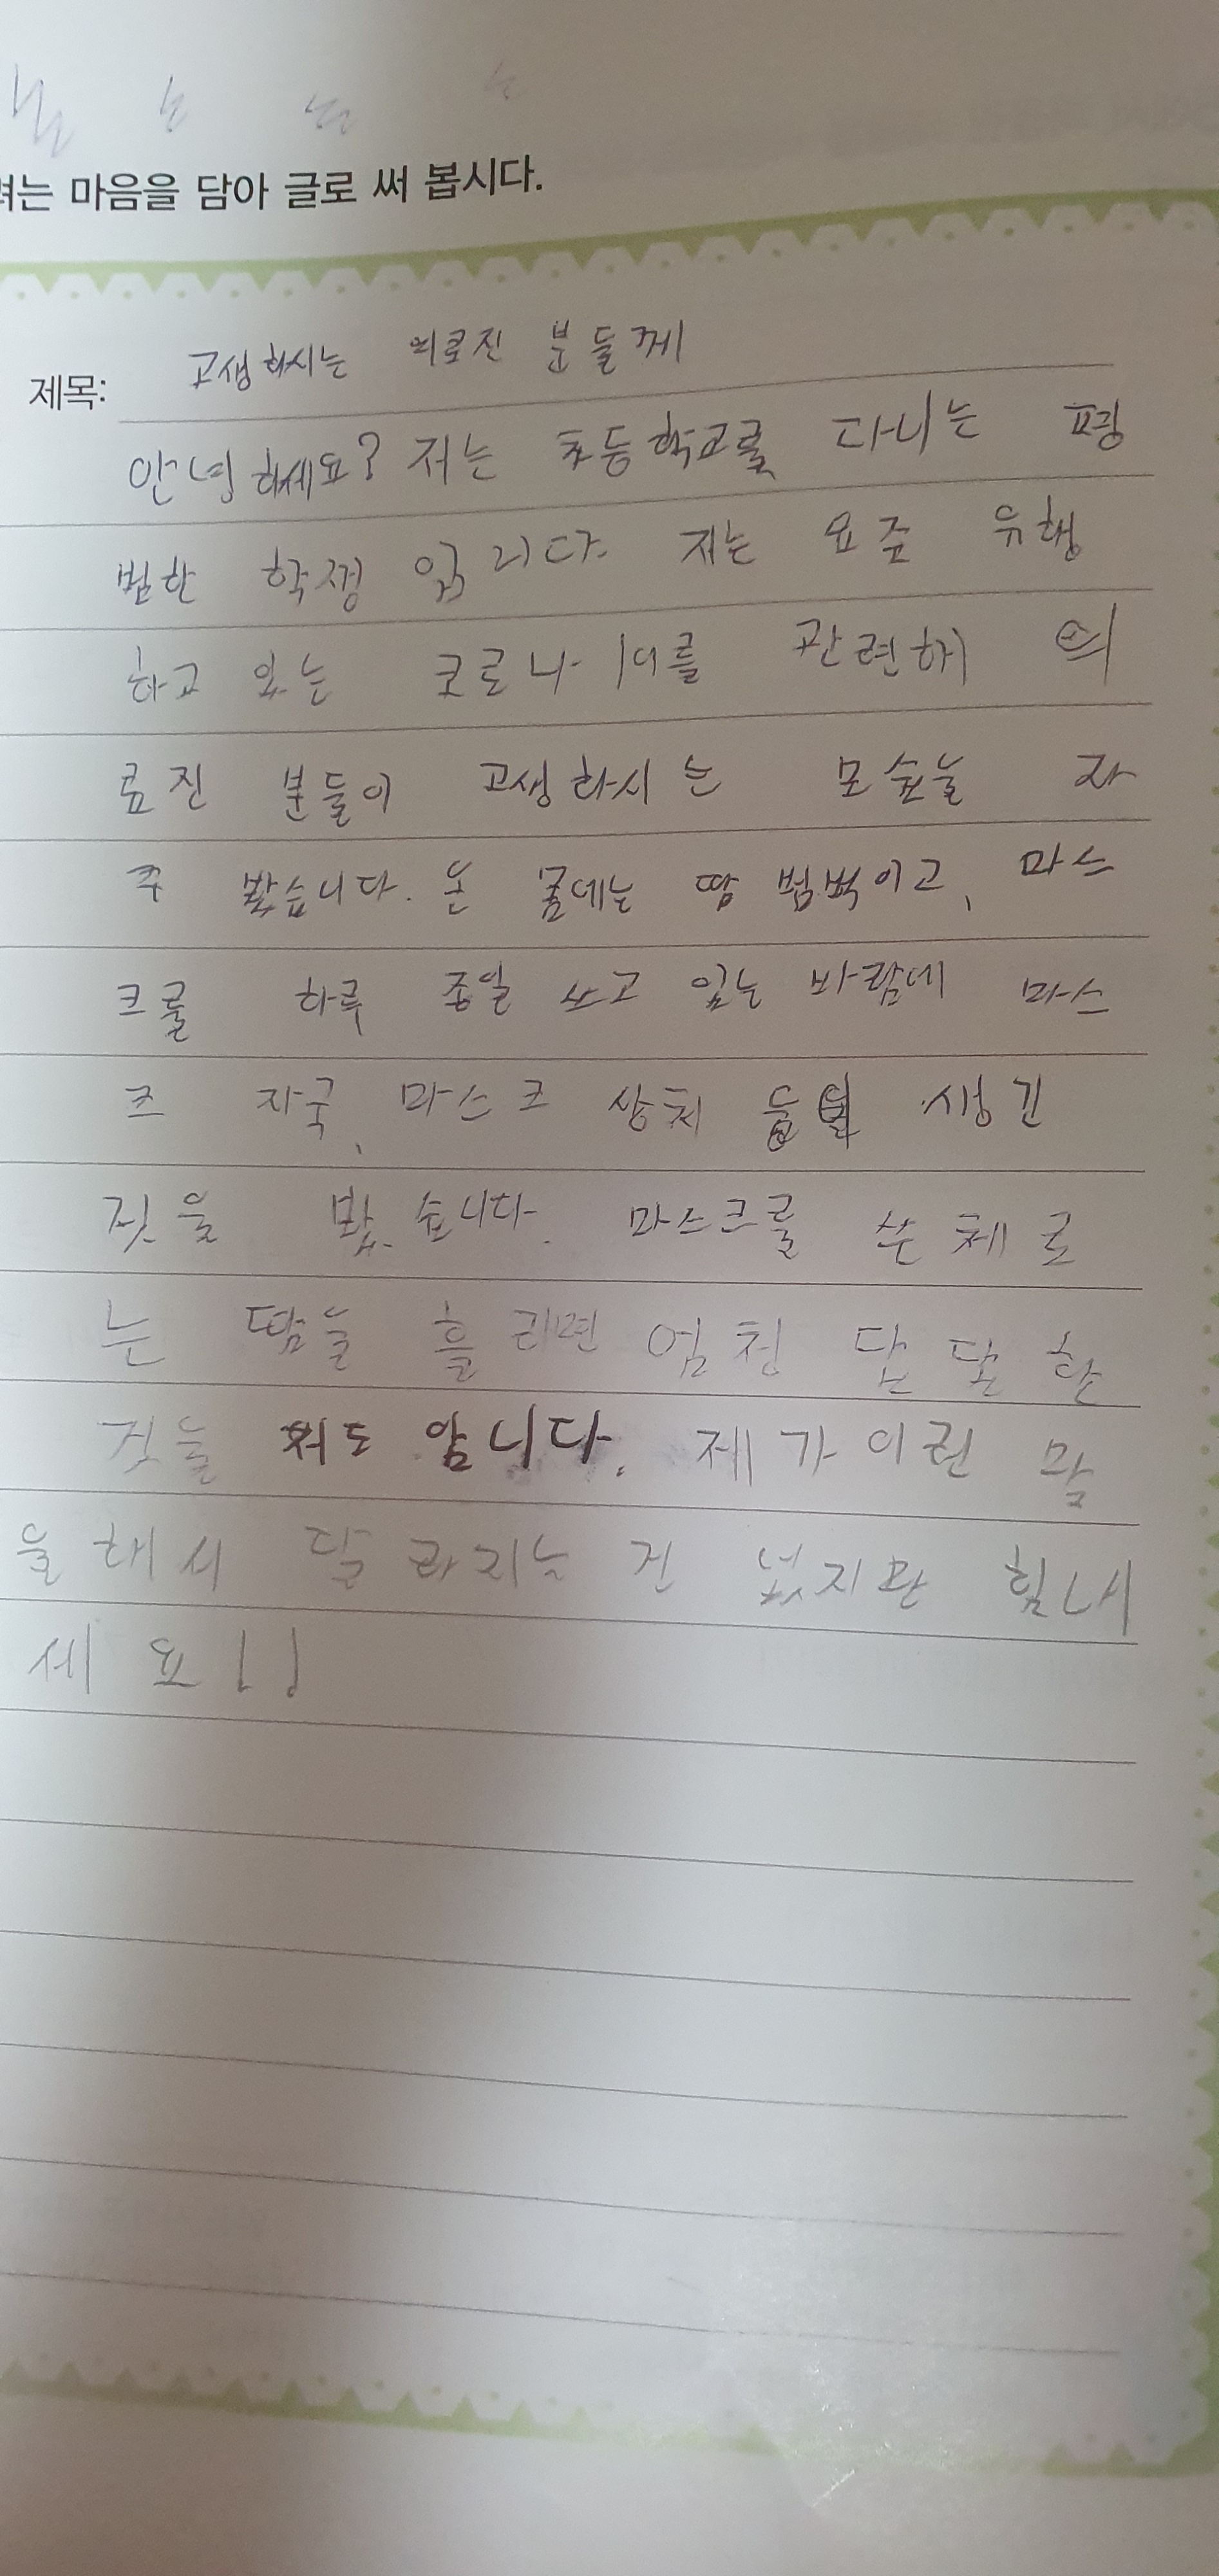 려는 마음을 담아 글로 써 봅시다.
제목: 고생하시는 의료진 분들께
안녕하세요? 저는 초등학교를 다니는 평
범한 학생 입니다. 저는 요즘 유행
하고 있는 코로나 19를 관련해 의
료진 분들이 고생하시는 모습늘 자
주 봤습니다. 온 몸에는 땀 범벅이고, 마스
크를 하루 종일 쓰고 있는 바람에 마스
크 자국, 마스크 상처 등 생긴
것을 봤습니다. 마스크를 쓴 체로
는 땀늘 흘리면 엄청 답답한
것늘 저도 압니다. 제가 이런 말
을 해서 달라지는 건 없지만 힘내
세요!!